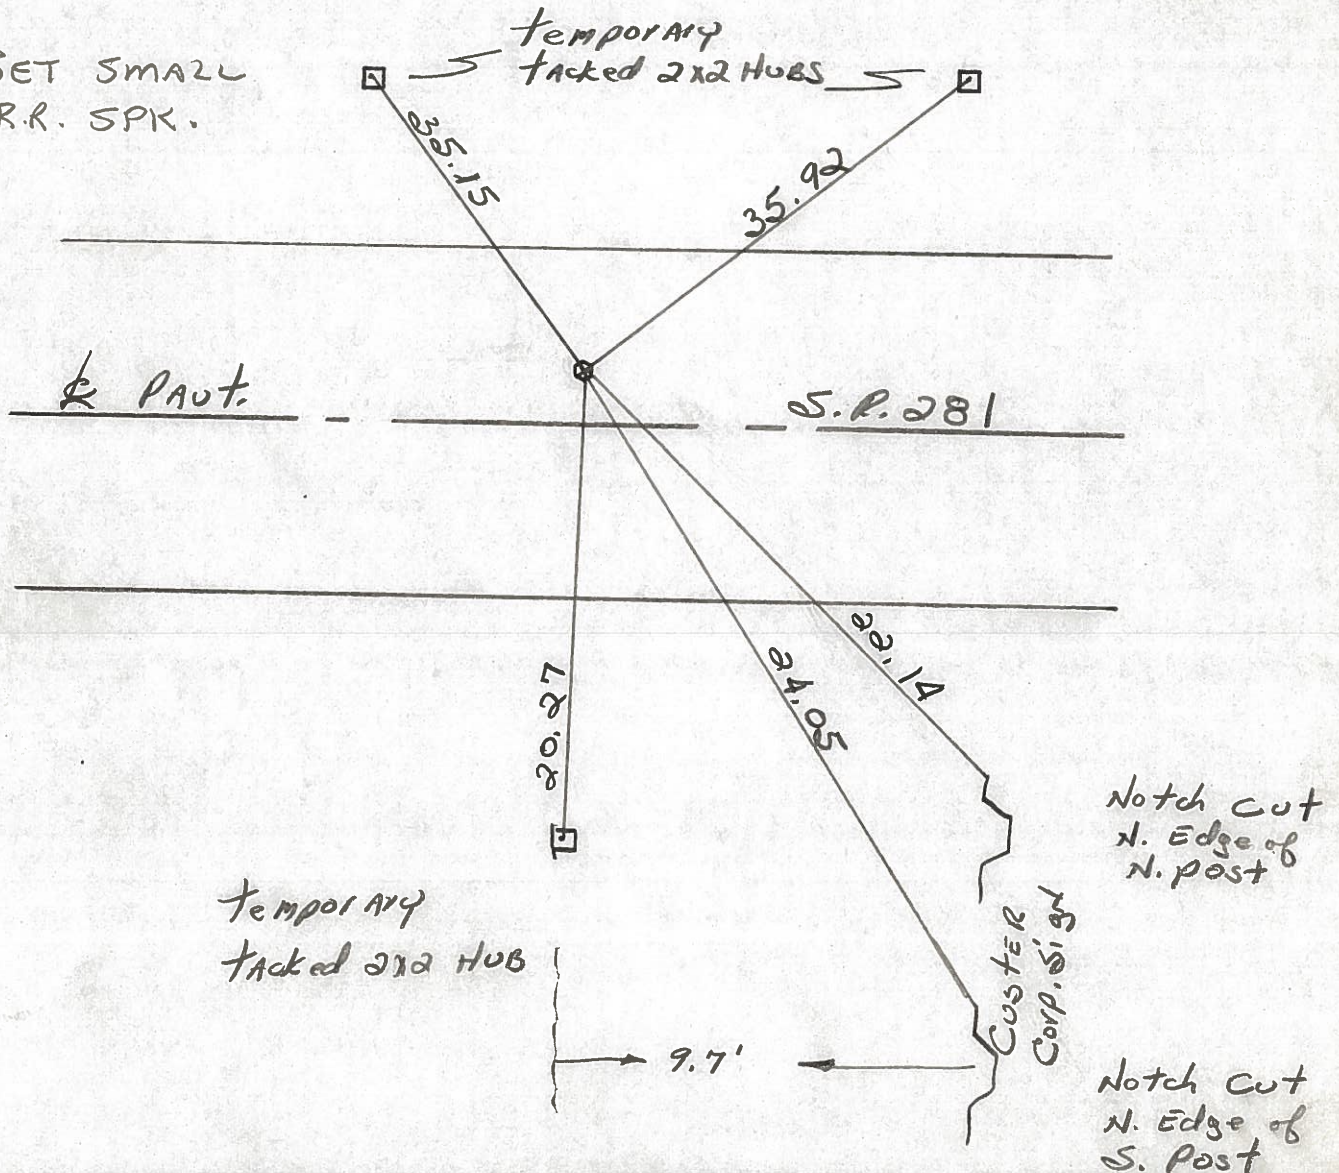 SET SMALL
R.R. SPK.
temporary
tacked 2x2 HUBS
35.15
35.92
℄ PAvt.
S.R. 281
20.27
24.05
22.14
Notch Cut
N. Edge of
N. post
temporary
tacked 2x2 HUB
CUSTER
Corp. Sign
9.7'
Notch Cut
N. Edge of
S. Post